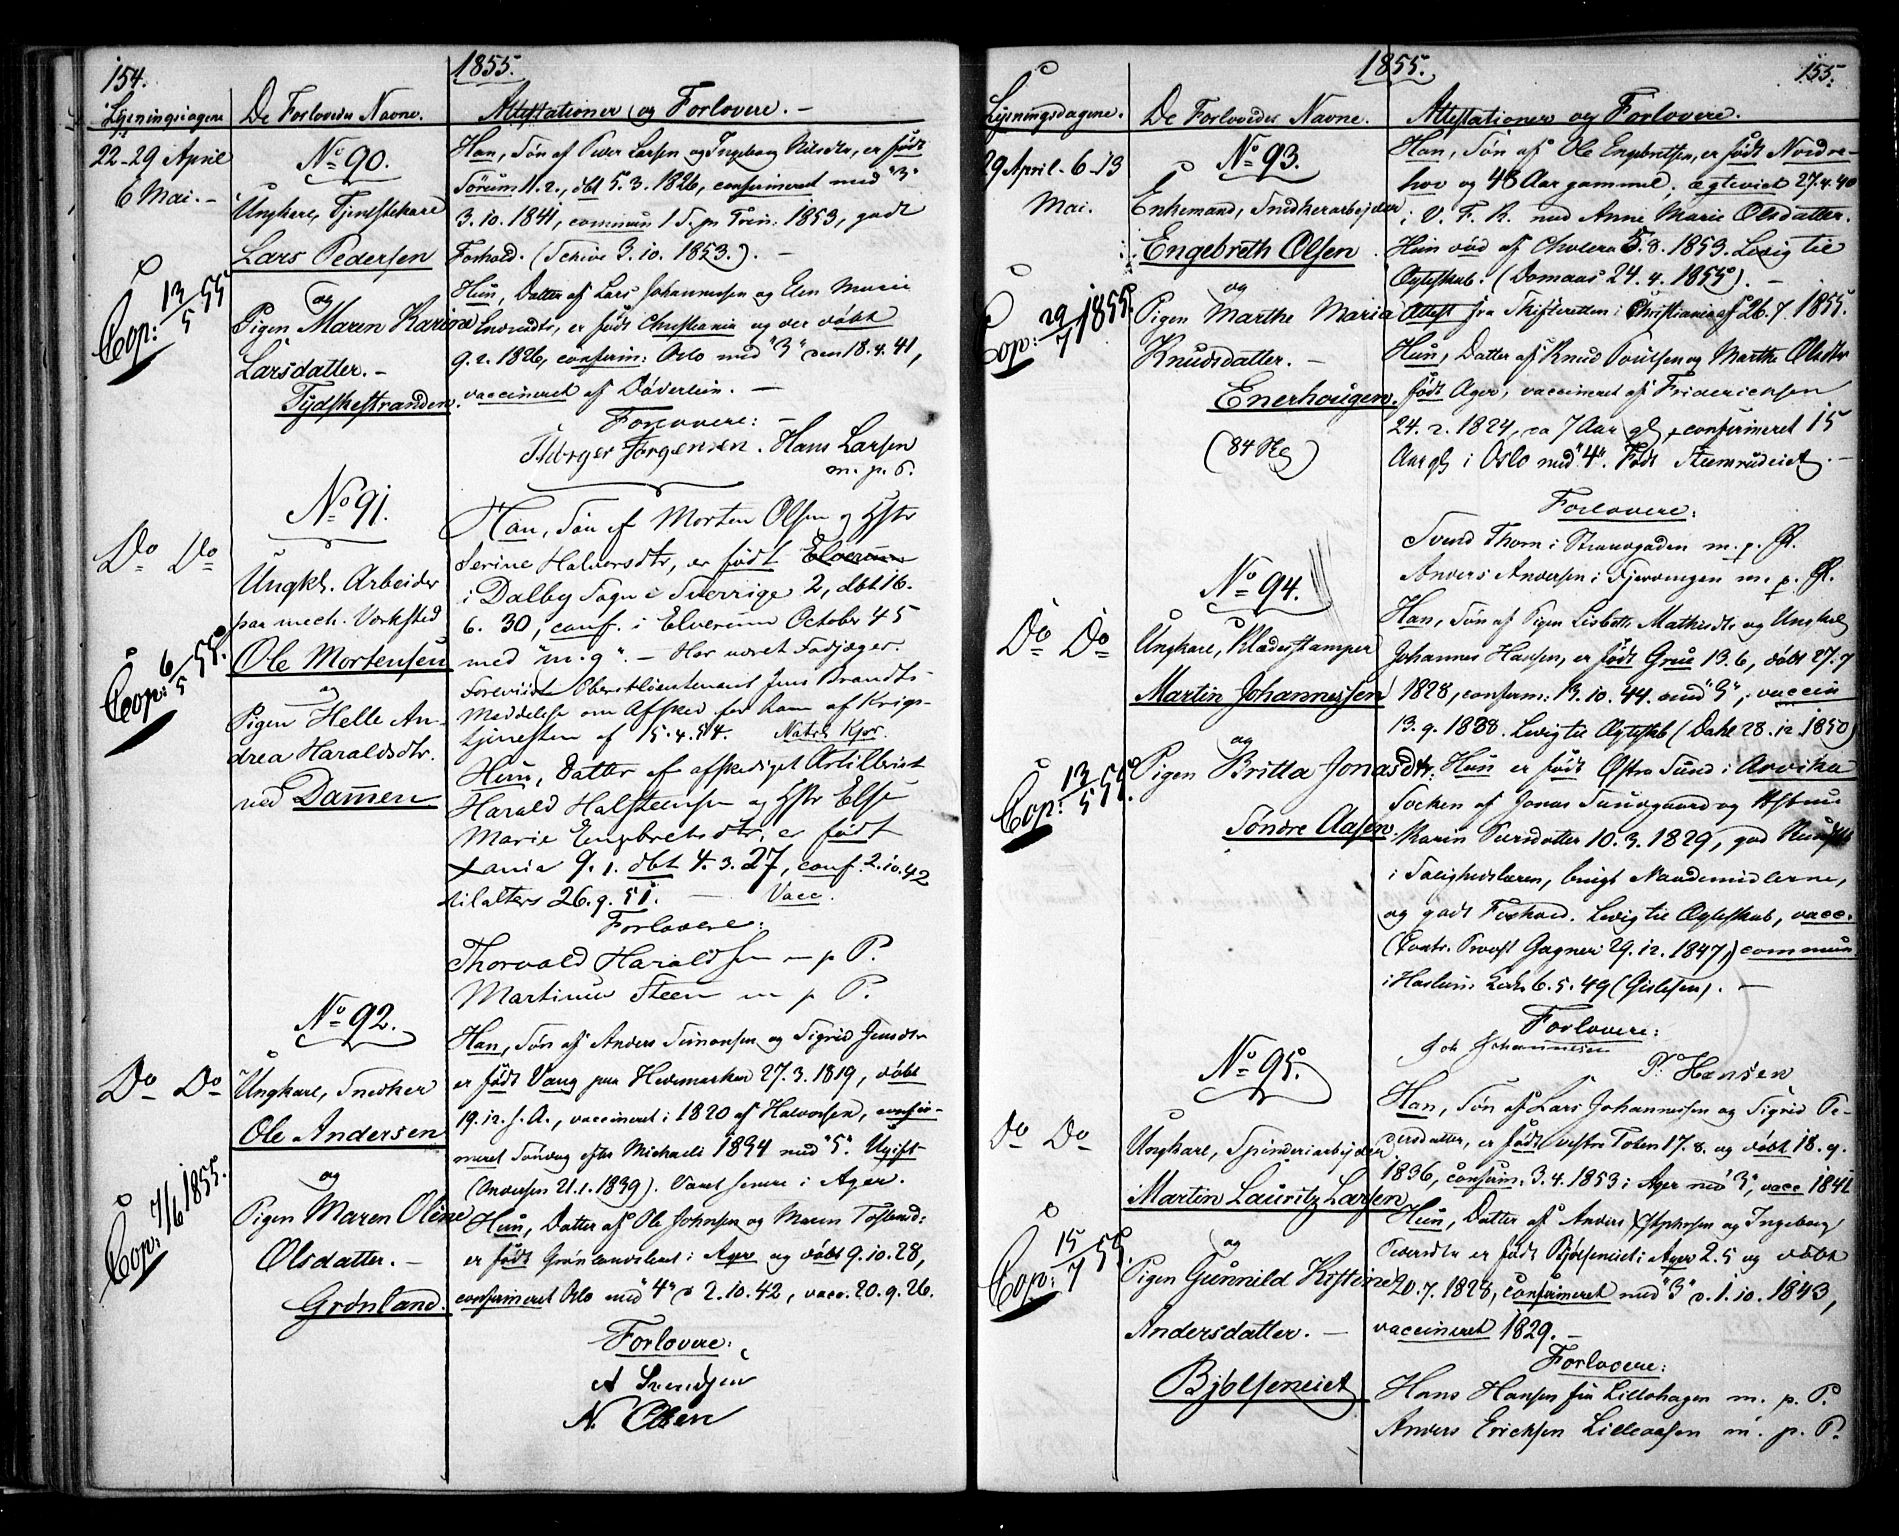 154.
1855.
Lysningsdagene
De Forlovedes Navne.
Attestationer og Forlovere. –
22-29 April
6 Mai. –
No 90.
Ungkarl, Tjenestekarl
Lars Pedersen
og
Pigen Maren Karine
Larsdatter. –
Tydskestranden.
Cop: 13/5 55
Han, Søn af Peder Larsen og Ingeborg Nilsdtr, er født
Sørum 11.2., dbt 5.3.1826, confirmeret med "3"
3.10.1841, commun 1 S. p. Trin: 1853, godt
Forhold. (Schive 3.10.1853.). –
Hun, Datter af Lars Johannessen og Elen Marie
er født Christiania og der døbt
9.2.1826, confirm: Oslo med "3" den 18.4.41,
vaccineret af Døderlein. –
Forlovere: –
Jørgensen. Hans Larsen
m. p. P.
No 91.
Do Do
Ungkl. Arbeider
paa mech. Værksted
Ole Mortensen
og
Pigen Helle An-
drea Haraldsdtr.
ved Dammen
Cop: 6/5 55.
Han, Søn af Morten Olsen og Hstr
Serine Halvorsdtr, er født Elverum
i Dalby Sogn i Sverrige 2, dbt 16.
6. 30, conf. i Elverum October 45
med "m.g". – Har været Fodjæger.
Foreviist Oberstlieutenant Jens Brandts
Meddelelse om Afsked for ham af Krigs-
tjenesten af 15.4.54.
Hun, Datter af afskediget Artillerist
Harald Halsteensen og Hstr Else
Marie Engebretsdtr, er født
Xania 9.1. dbt 4.3.27, conf. 2.10.42
til alters 26.9.51. – Vacc.
Forlovere:
Thorvald Haraldsen m p P.
Martinus Steen m p P.
No 92.
Do Do
Ungkarl, Snedker
Ole Andersen
og
Pigen Maren Oline
Olsdatter. –
Grønland.
Cop: 7/6 1855.
Han, Søn af Anders Simensen og Sigrid Jensdtr
er født Vang paa Hedemarken 27.3.1819, døbt
19.12. s. A., vaccineret i 1820 af Halvorsen, confir-
meret Søndag efter Michaeli 1834 med "5". Ugift
(Andersen 21.1.1839). Været senere i Ager.
Hun, Datter af Ole Johnsen og Maren
er født Grønlandsleret i Ager og døbt 9.10.28,
confirmeret Oslo med "4" d 2.10.42, vacc. 20.9.26.
Forlovere:
A Svendsen
N. Olsen
1855.
155.
Lysningsdagene.
De Forlovedes Navne.
Attestationer og Forlovere.
29 April - 6-13
Mai.
No 93.
Enkemand, Snedkerarbejder
Engebreth Olsen
og
Pigen Marthe Maria
Knudsdatter. –
Enerhougen.
(84 Sk)
Cop: 29/7 1855.
Han, Søn af Ole Engebretsen, er født Nordre-
hov og 48 Aar gammel, ægteviet 27.4.40
i V. F. K. med Anne Marie Olsdatter.
Hun død af Cholera 5.8.1853. Ledig til
Ægteskab. (Domaas 24.4.1855). –
Attest fra Skifteretten i Christiania af 26.7.1855.
Hun, Datter af Knud Poulsen og Marthe Olsdtr
født Ager, vaccineret af Fridericksen
24.2.1824, ca 7 Aar gl, confirmeret 15
Aar gl i Oslo med "4". Født Steensrudeiet. –
Forlovere:
Svend Thom i Storgaden m. p. P.
Anders Andersen i Fjerdingen m. p. P.
No 94.
Do Do
Ungkarl, Klædesstamper
Martin Johannessen
og
Pigen Britta Jonasdtr.
Søndre Aasen.
Cop: 13/5 55.
Han, Søn af Pigen Lisbeth Mathisdtr og Ungkarl
Johannes Hansen, er født Grue 13.6, døbt 27.7
1828, confirm: 13.10.44. med "3", vaccin
13.9.1838. Ledig til Ægteskab (Dahl 28.12.1850)
Hun er født Østra Sund i Arvika
Socken af Jonas Sundgaard og
Karin Persdatter 10.3.1829, god Kundskab
i Salighedslæren, brugt Naademidlerne,
og godt Forhold. Ledig til Ægteskab, vacc.
(Contr. Provst Gagner 29.12.1847,) commun
i Haslum Kirke 6.5.49 (Gislesen). –
Forlovere:
Joh Johannesen
P. Hansen
No 95.
Do Do
Ungkarl, Spinderiarbejder
Martin Lauritz Larsen
og
Pigen Gunnild Kristine
Andersdatter. –
Bjølseneiet
Cop: 15/7 55.
Han, Søn af Lars Johannessen og Sigrid Pe-
dersdatter, er født vestre Toten 17.8. og døbt 18.9.
1836, confirm. 3.4.1853 i Ager med "3", vacc 1841
Hun, Datter af Anders Stephensen og Ingeborg
Pedersdtr er født Bjølseneiet i Ager 2.5 og døbt
20.7.1828, confirmeret med "3" d. 1.10.1843,
vaccineret 1829. –
Forlovere:
Hans Hansen fra Lillohagen m. p. P.
Anders Ericksen Lilleaasen m. p. P.